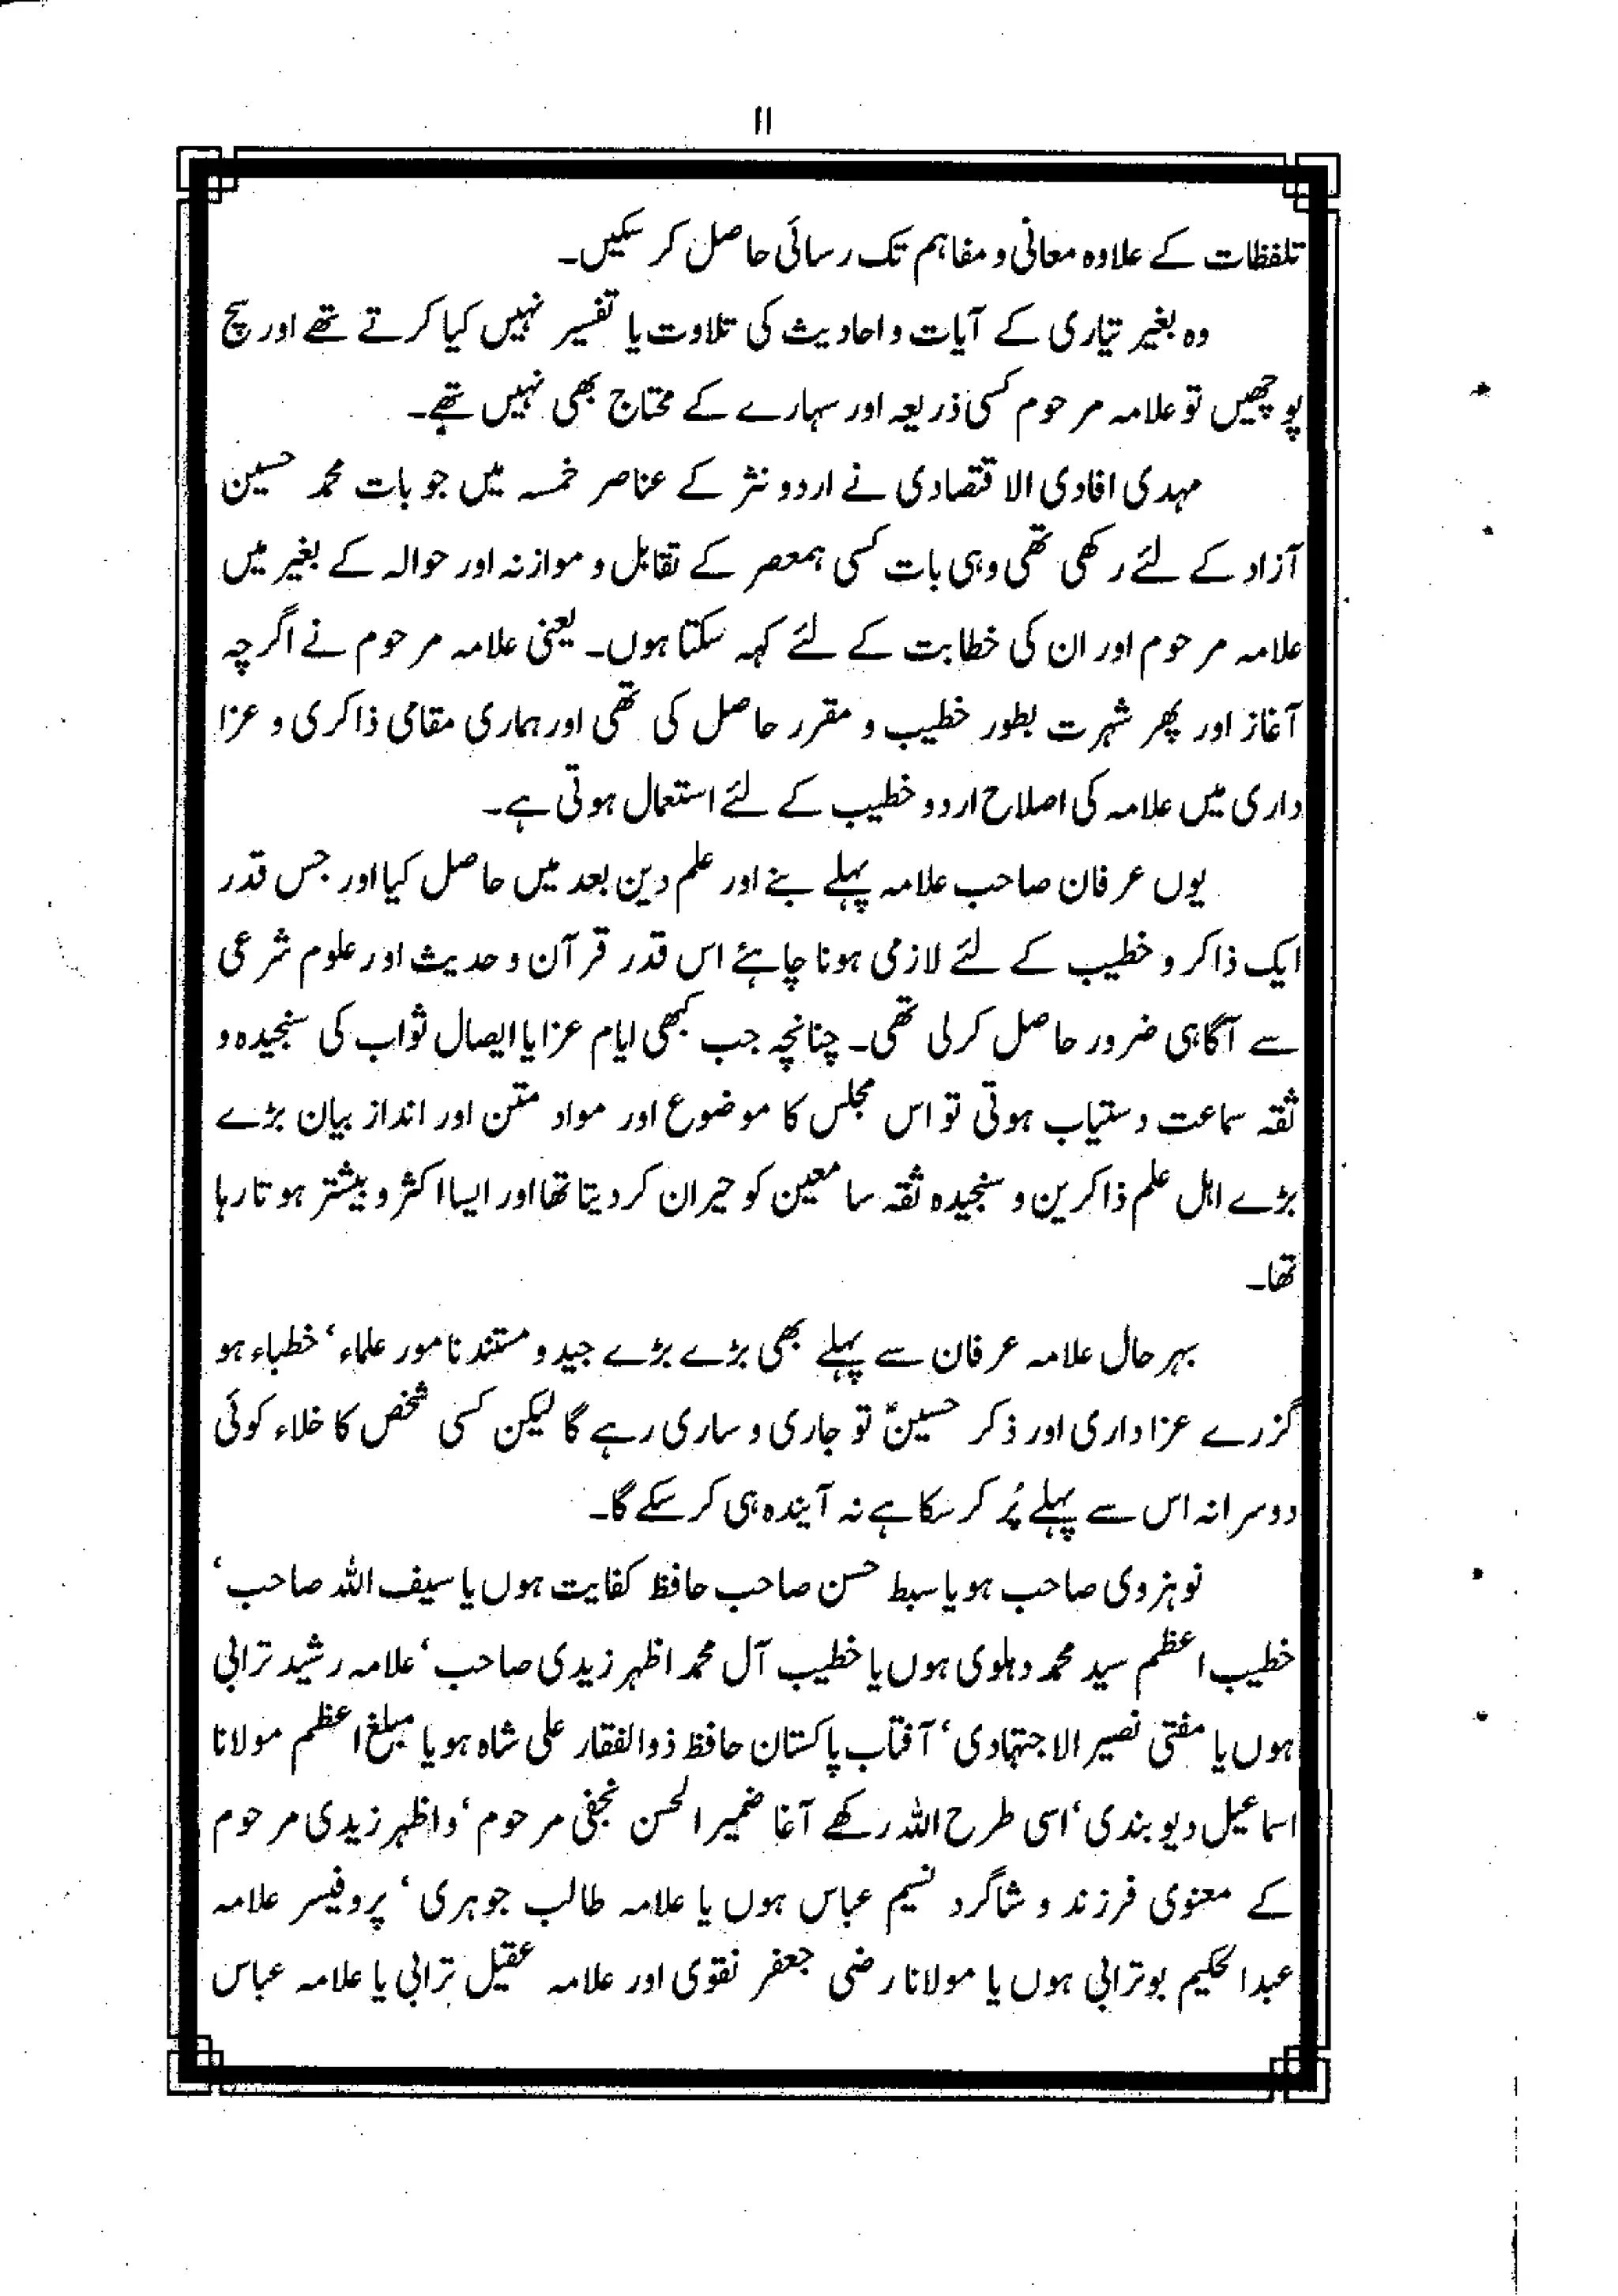 ۱۱
تلفظات کے علاوہ معانی و مفاہم تک رسائی حاصل کر سکیں۔
وہ بغیر تیاری کے آیات و احادیث کی تلاوت یا تفسیر نہیں کیا کرتے تھے اور سچ
پوچھیں تو علامہ مرحوم کسی ذریعہ اور سہارے کے محتاج بھی نہیں تھے۔
مہدی افادی الاقتصادی نے اردو نثر کے عناصر خمسہ میں جو بات محمد حسین
آزاد کے لئے رکھی تھی وہی بات کسی ہمعصر کے تقابل و موازنہ اور حوالہ کے بغیر میں
علامہ مرحوم اور ان کی خطابت کے لئے کہہ سکتا ہوں۔ یعنی علامہ مرحوم نے اگرچہ
آغاز اور پھر شہرت بطور خطیب و مقرر حاصل کی تھی اور ہماری مقامی ذاکری و عزا
داری میں علامہ کی اصلاح اردو خطیب کے لئے استعمال ہوتی ہے۔
یوں عرفان صاحب علامہ پہلے بنے اور علم دین بعد میں حاصل کیا اور جس قدر
ایک ذاکر و خطیب کے لئے لازمی ہونا چاہئے اس قدر قرآن و حدیث اور علوم شرعی
سے آگاہی ضرور حاصل کرلی تھی۔ چنانچہ جب کبھی ایام عزا یا ایصال ثواب کی سنجیدہ و
ثقہ سماعت دستیاب ہوتی تو اس مجلس کا موضوع اور مواد متن اور انداز بیان بڑے
بڑے اہل علم ذاکرین و سنجیدہ ثقہ سامعین کو حیران کردیتا تھا اور ایسا اکثر و بیشتر ہوتا رہا
تھا۔
بہرحال علامہ عرفان سے پہلے بھی بڑے بڑے جید و مستند نامور علماء‘ خطباء ہو
گزرے عزاداری اور ذکر حسینؑ تو جاری و ساری رہے گا لیکن کسی شخص کا خلاء کوئی
دوسرا نہ اس سے پہلے پُر کرسکا ہے نہ آیندہ ہی کرسکے گا۔
نوہزوی صاحب ہو یا سبط حسن صاحب حافظ کفایت ہوں یا سیف اللہ صاحب‘
خطیب اعظم سید محمد دہلوی ہوں یا خطیب آل محمد اظہر زیدی صاحب‘ علامہ رشید ترابی
ہوں یا مفتی نصیر الاجتہادی‘ آفتاب پاکستان حافظ ذوالفقار علی شاہ ہو یا مبلغ اعظم مولانا
اسماعیل دیوبندی‘ اسی طرح اللہ رکھے آغا ضمیر الحسن نجفی مرحوم‘ و اظہر زیدی مرحوم
کے معنوی فرزند و شاگرد نسیم عباس ہوں یا علامہ طالب جوہری‘ پروفیسر علامہ
عبدالحکیم بوترابی ہوں یا مولانا رضی جعفر نقوی اور علامہ عقیل ترابی یا علامہ عباس